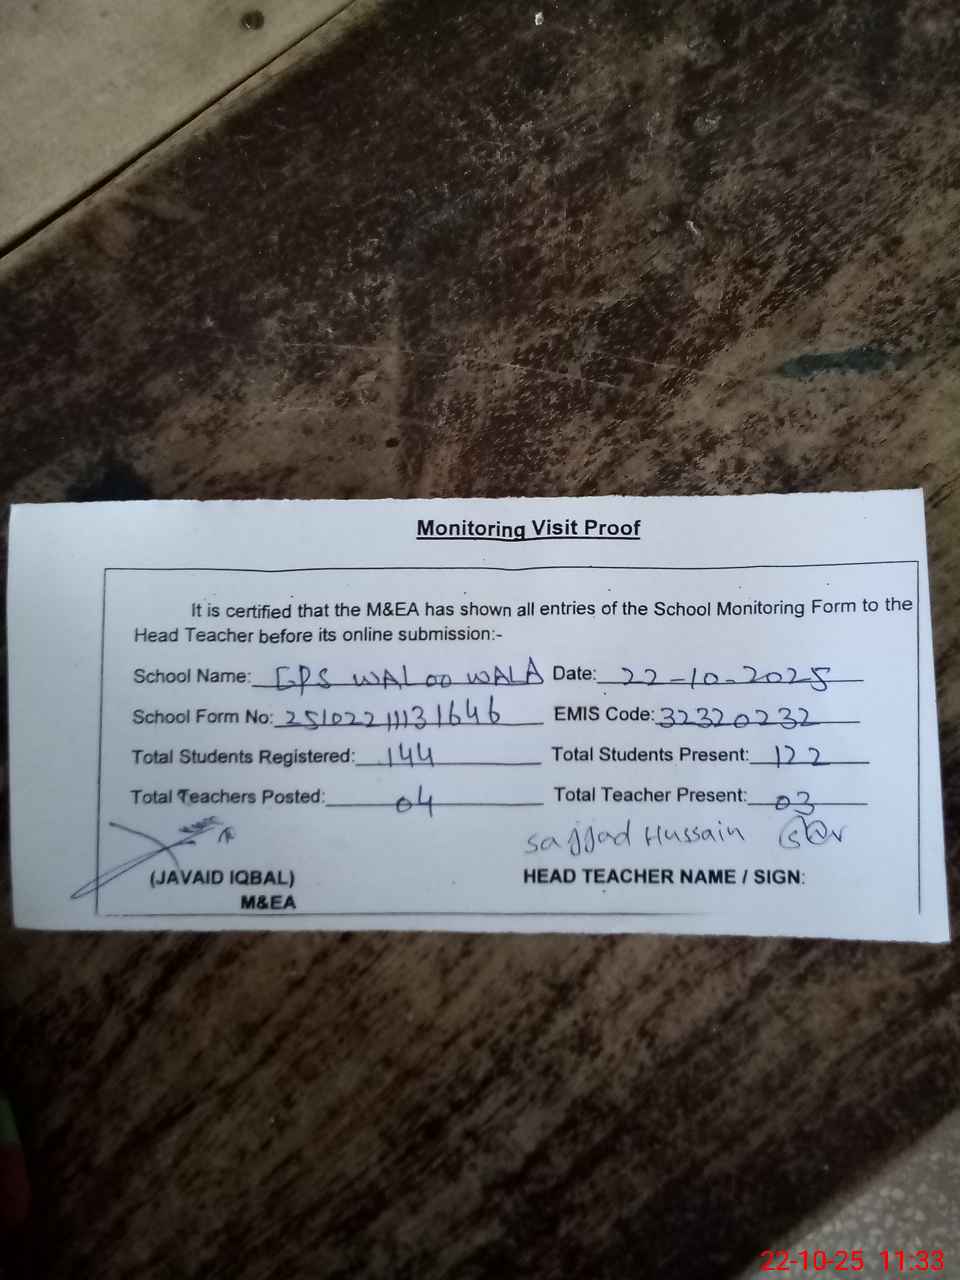 Monitoring Visit Proof
It is certified that the M&EA has shown all entries of the School Monitoring Form to the
Head Teacher before its online submission:-
School Name: GPS WALOO WALA Date: 22-10-2025
School Form No: 251022111131646 EMIS Code: 32320232
Total Students Registered: 144 Total Students Present: 122
Total Teachers Posted: 04 Total Teacher Present: 03
Sajjad Hussain
(JAVAID IQBAL) HEAD TEACHER NAME / SIGN:
M&EA
22-10-25 11:33